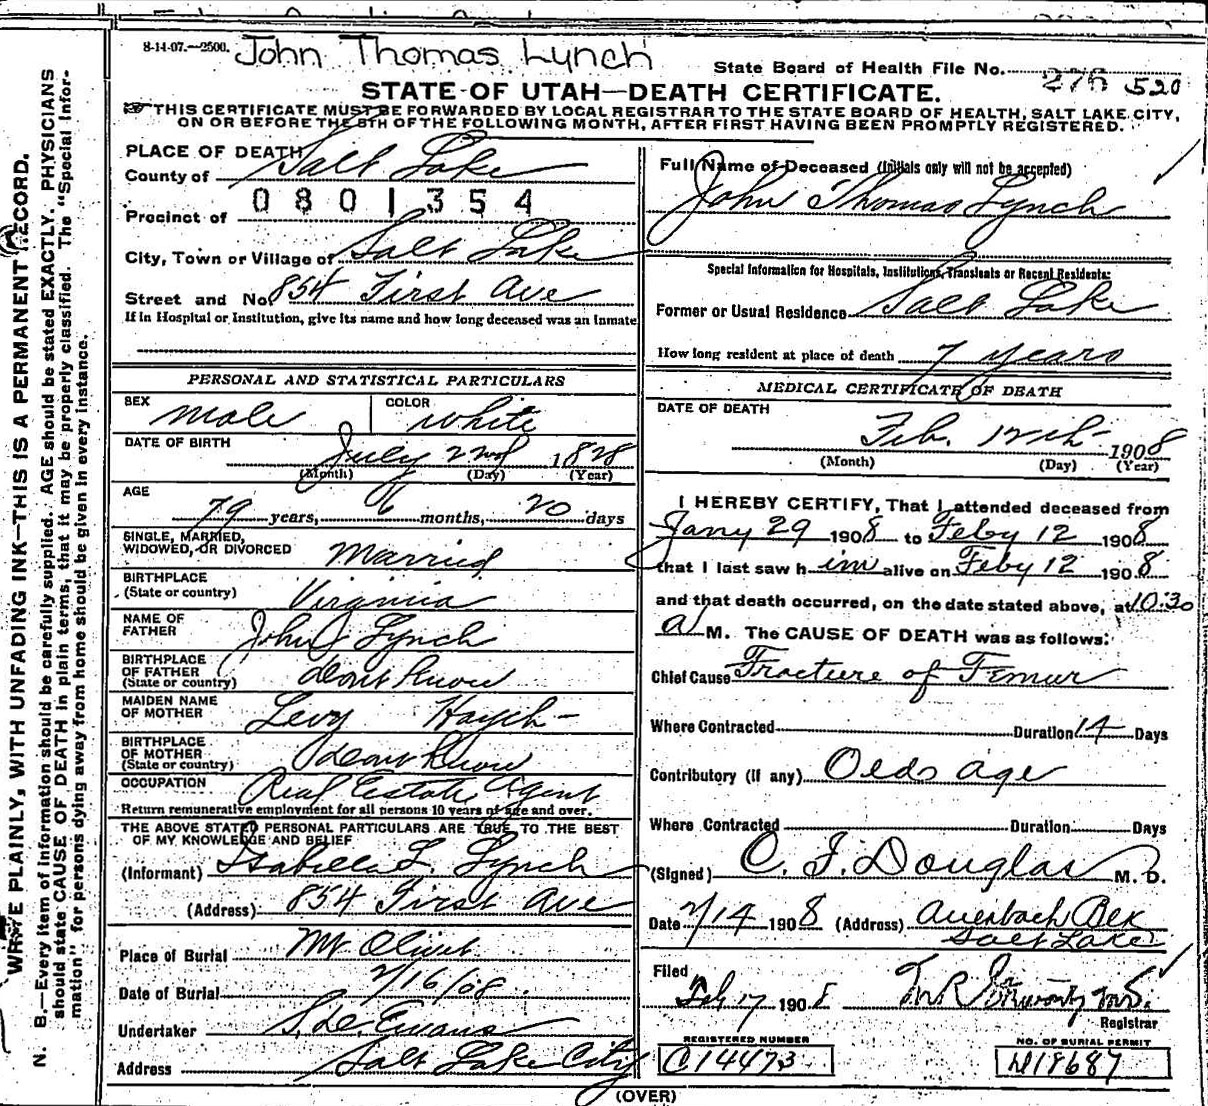 8-14-07.—2500. John Thomas Lynch
State Board of Health File No. 276 520
STATE OF UTAH—DEATH CERTIFICATE.
THIS CERTIFICATE MUST BE FORWARDED BY LOCAL REGISTRAR TO THE STATE BOARD OF HEALTH, SALT LAKE CITY,
ON OR BEFORE THE 5TH OF THE FOLLOWING MONTH, AFTER FIRST HAVING BEEN PROMPTLY REGISTERED.
PLACE OF DEATH
County of Salt Lake
0801354
Precinct of
City, Town or Village of Salt Lake
Street and No 854 First Ave
If in Hospital or Institution, give its name and how long deceased was an Inmate
PERSONAL AND STATISTICAL PARTICULARS
SEX male COLOR white
DATE OF BIRTH July 22nd 1828
(Month) (Day) (Year)
AGE
79 years, 6 months, 20 days
SINGLE, MARRIED,
WIDOWED, OR DIVORCED Married
BIRTHPLACE
(State or country) Virginia
NAME OF
FATHER John Lynch
BIRTHPLACE
OF FATHER
(State or country) dont know
MAIDEN NAME
OF MOTHER Levy Haych
BIRTHPLACE
OF MOTHER
(State or country) dont know
OCCUPATION Real Estate Agent
Return remunerative employment for all persons 10 years of age and over.
THE ABOVE STATED PERSONAL PARTICULARS ARE TRUE TO THE BEST
OF MY KNOWLEDGE AND BELIEF
(Informant) Isabella L. Lynch
(Address) 854 First Ave
Place of Burial Mt Olivet
Date of Burial 2/16/08.
Undertaker Evans
Address Salt Lake City
Full Name of Deceased (Initials only will not be accepted)
John Thomas Lynch
Special Information for Hospitals, Institutions, Transients or Recent Residents:
Former or Usual Residence Salt Lake
How long resident at place of death 7 years
MEDICAL CERTIFICATE OF DEATH
DATE OF DEATH
Feb. 12th 1908
(Month) (Day) (Year)
I HEREBY CERTIFY, That I attended deceased from
Jany 29 1908 to Feby 12 1908
that I last saw him alive on Feby 12 1908
and that death occurred, on the date stated above, at 10:30
a M. The CAUSE OF DEATH was as follows:
Chief Cause Fracture of Femur
Where Contracted Duration 14 Days
Contributory (if any) Old age
Where Contracted Duration Days
(Signed) C. F. Douglas M. D.
Date 2/14 1908 (Address) Auerbach
Salt Lake
Filed
Feb 17 1908
Registrar
REGISTERED NUMBER
C14473
NO. OF BURIAL PERMIT
D18687
(OVER)
WRITE PLAINLY, WITH UNFADING INK—THIS IS A PERMANENT RECORD.
N. B.—Every item of information should be carefully supplied. AGE should be stated EXACTLY. PHYSICIANS
should state CAUSE OF DEATH in plain terms, that it may be properly classified. The "Special Infor-
mation" for persons dying away from home should be given in every instance.